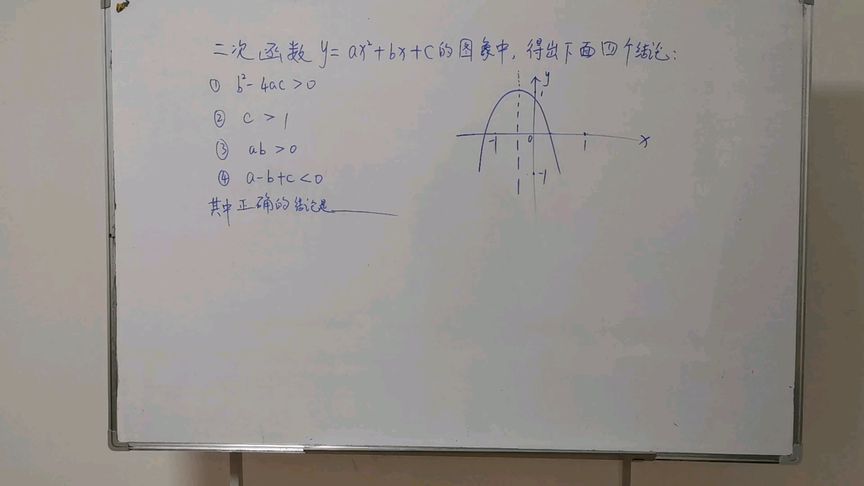 二次函数 y=ax²+bx+c的图象中，得出下面四个结论：
① b²-4ac>0
② c>1
③ ab>0
④ a-b+c<0
其中正确的结论是______
y
1
-1 0 1 x
-1